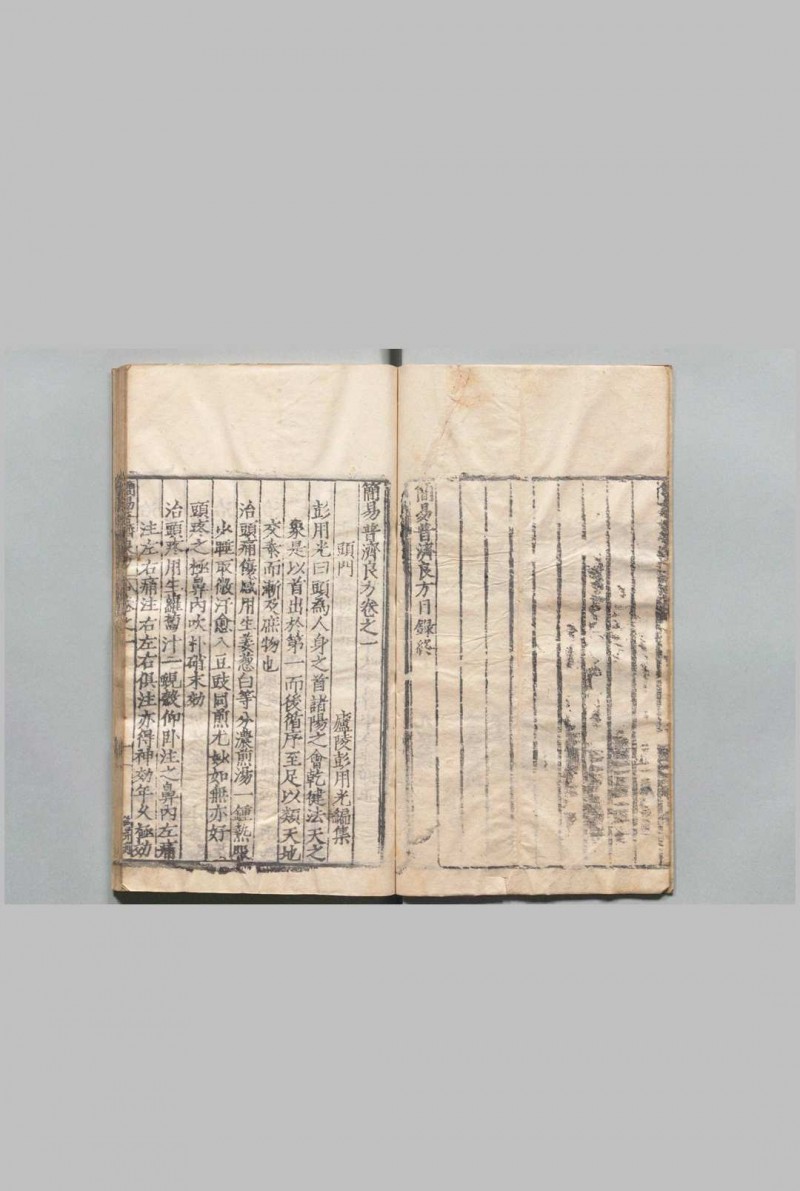 簡易普濟良方目錄終
簡易普濟良方卷之一
廬陵彭用光編集
頭門
彭用光曰頭為人身之首諸陽之會乾健法天之
象是以首出於第一而後循序至足以類天地
交泰而漸及庶物也
治頭痛傷感用生姜葱白等分濃煎湯一鍾熱服
少睡取微汗愈入豆豉同煎尤妙如無亦好
頭疼之極鼻內吹朴硝末効
治頭疼用生蘿蔔汁二蜆殼仰卧注之鼻內左痛
注左右痛注右左右俱注亦得神効年久極効